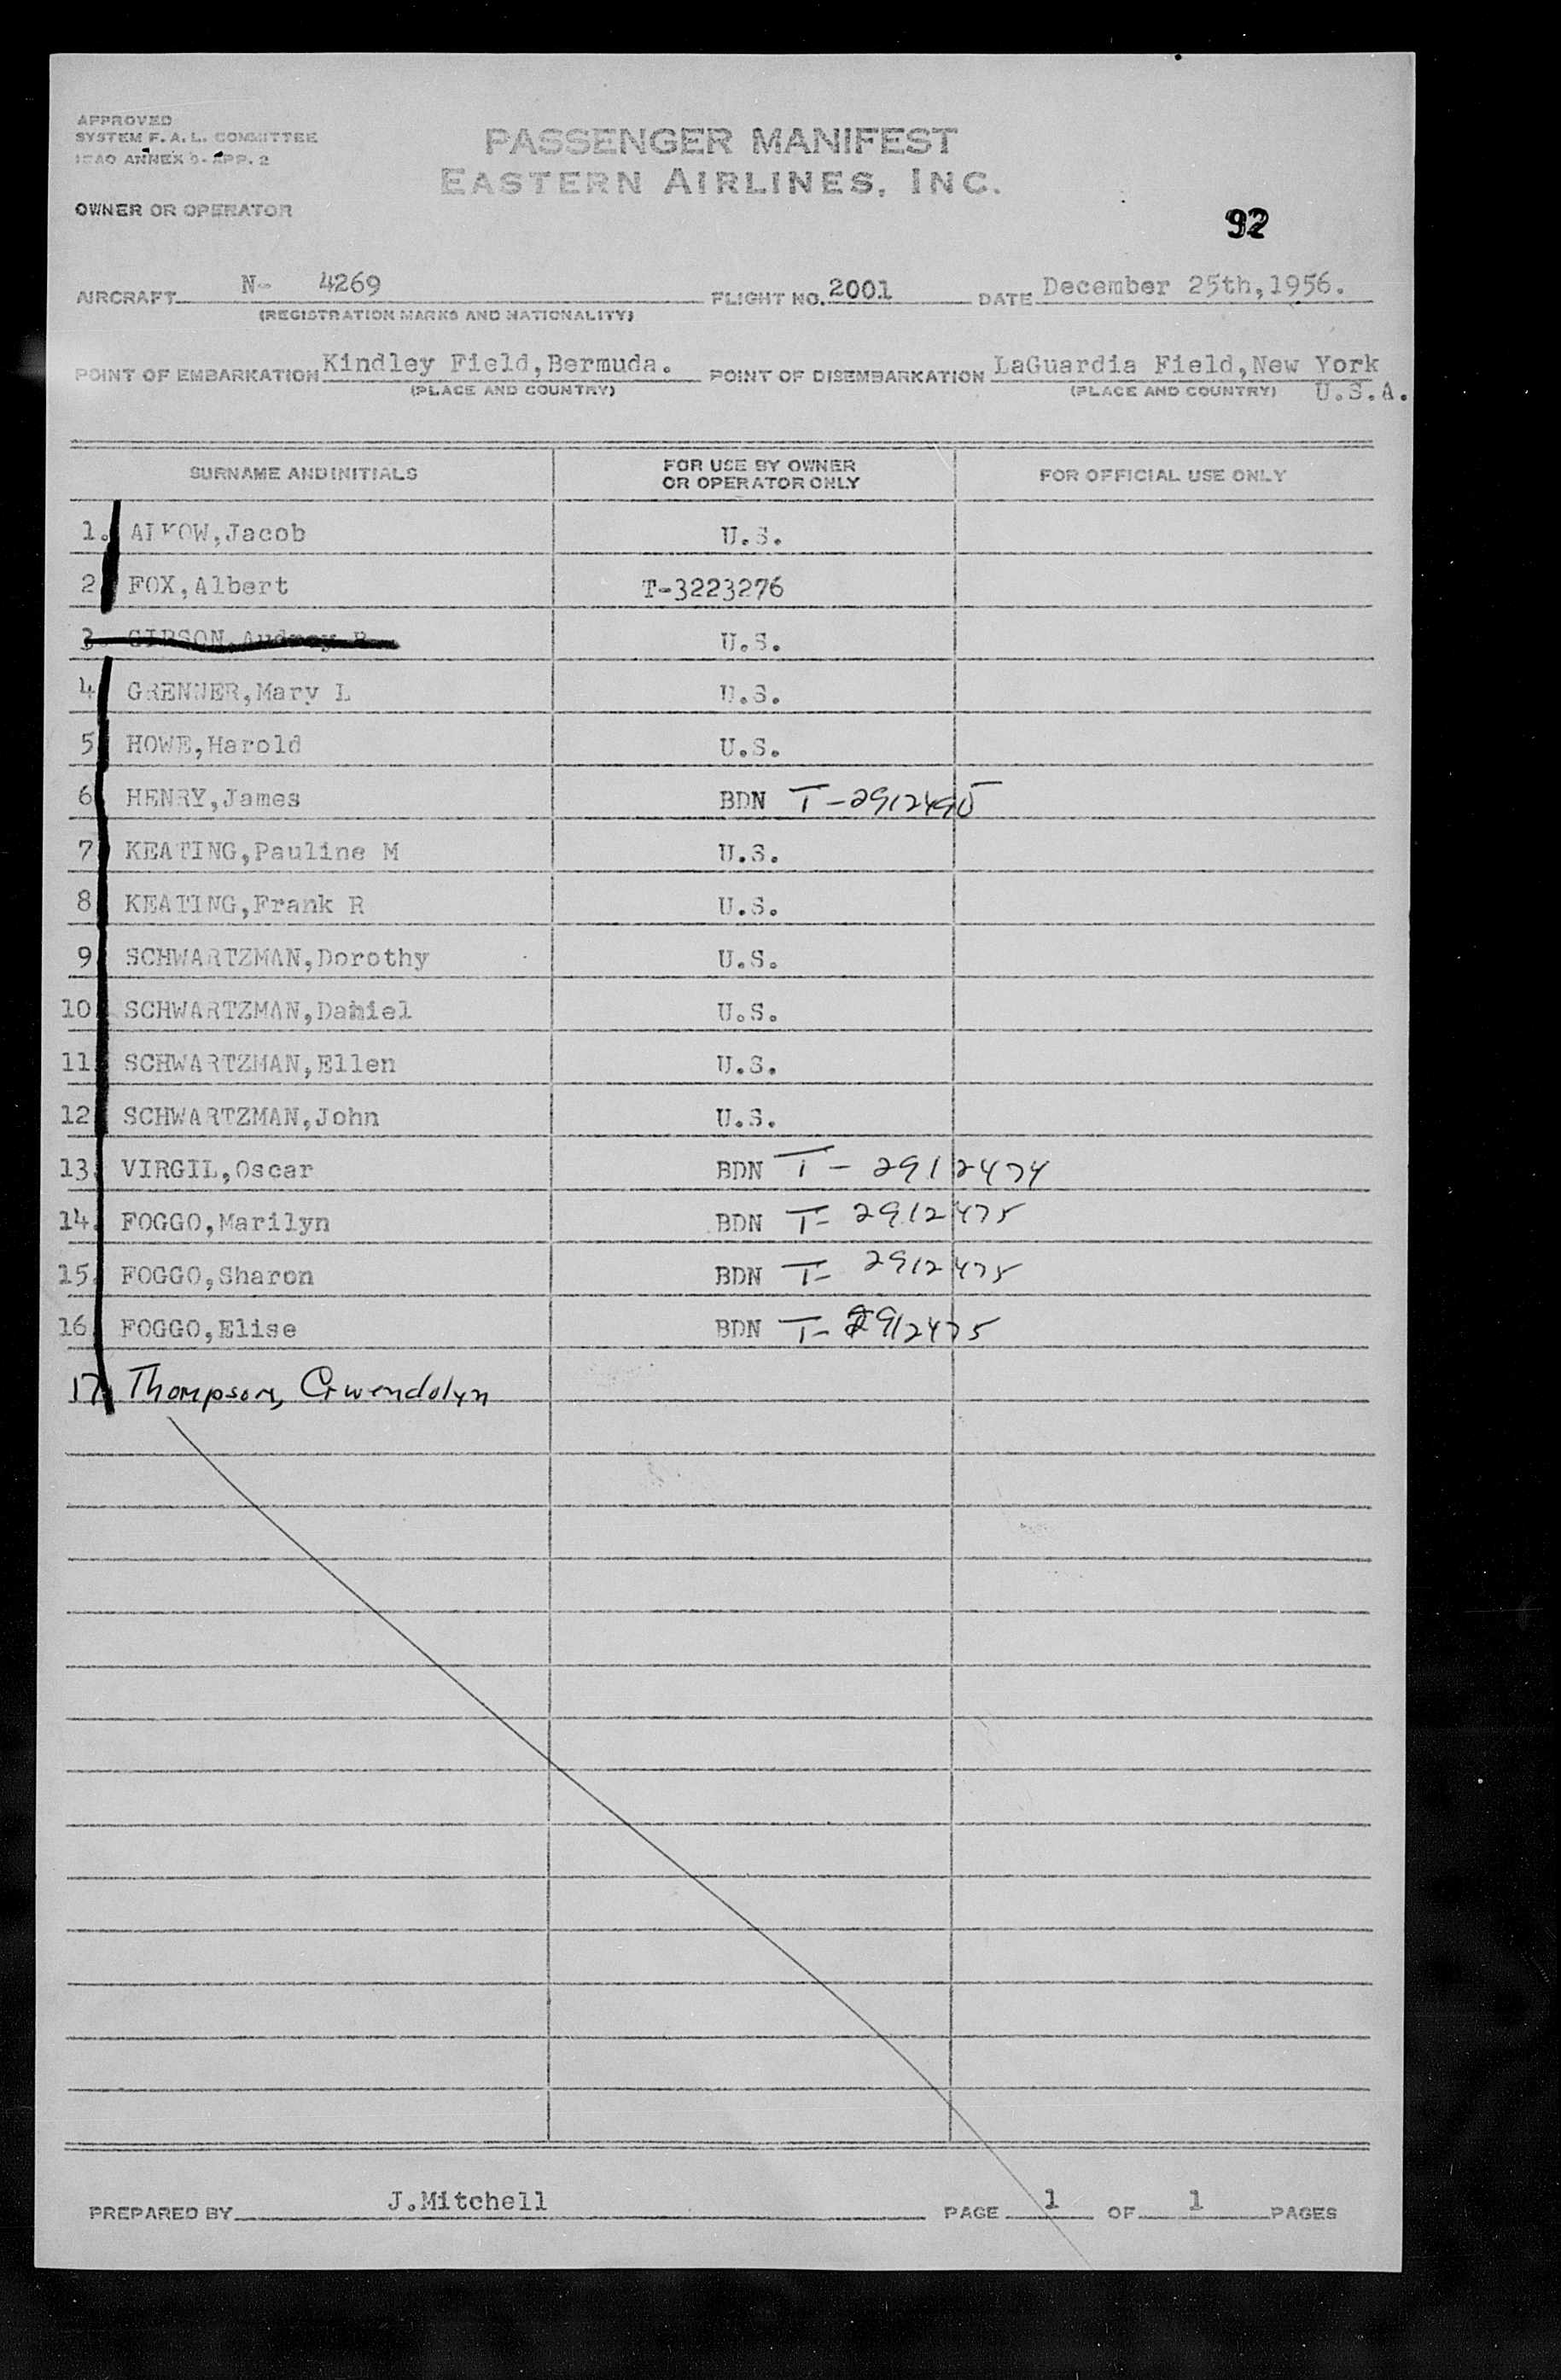 APPROVED
SYSTEM F. A. L. COMMITTEE
ICAO ANNEX 9 - APP. 2
PASSENGER MANIFEST
EASTERN AIRLINES, INC.
OWNER OR OPERATOR
92
AIRCRAFT N- 4269 FLIGHT NO. 2001 DATE December 25th,1956.
(REGISTRATION MARKS AND NATIONALITY)
POINT OF EMBARKATION Kindley Field,Bermuda. POINT OF DISEMBARKATION LaGuardia Field,New York
(PLACE AND COUNTRY) (PLACE AND COUNTRY) U.S.A.
SURNAME AND INITIALS FOR USE BY OWNER OR OPERATOR ONLY FOR OFFICIAL USE ONLY
1. ALKOW,Jacob U.S.
2 FOX,Albert T-3223276
3 GIBSON,Audrey U.S.
4 GRENNER,Mary L U.S.
5 HOWE,Harold U.S.
6 HENRY,James BDN T-2912495
7 KEATING,Pauline M U.S.
8 KEATING,Frank R U.S.
9 SCHWARTZMAN,Dorothy U.S.
10 SCHWARTZMAN,Daniel U.S.
11 SCHWARTZMAN,Ellen U.S.
12 SCHWARTZMAN,John U.S.
13. VIRGIL,Oscar BDN T- 2912474
14. FOGGO,Marilyn BDN T- 2912475
15. FOGGO,Sharon BDN T- 2912475
16 FOGGO,Elise BDN T- 2912475
17 Thompson, Gwendolyn
PREPARED BY J.Mitchell PAGE 1 OF 1 PAGES